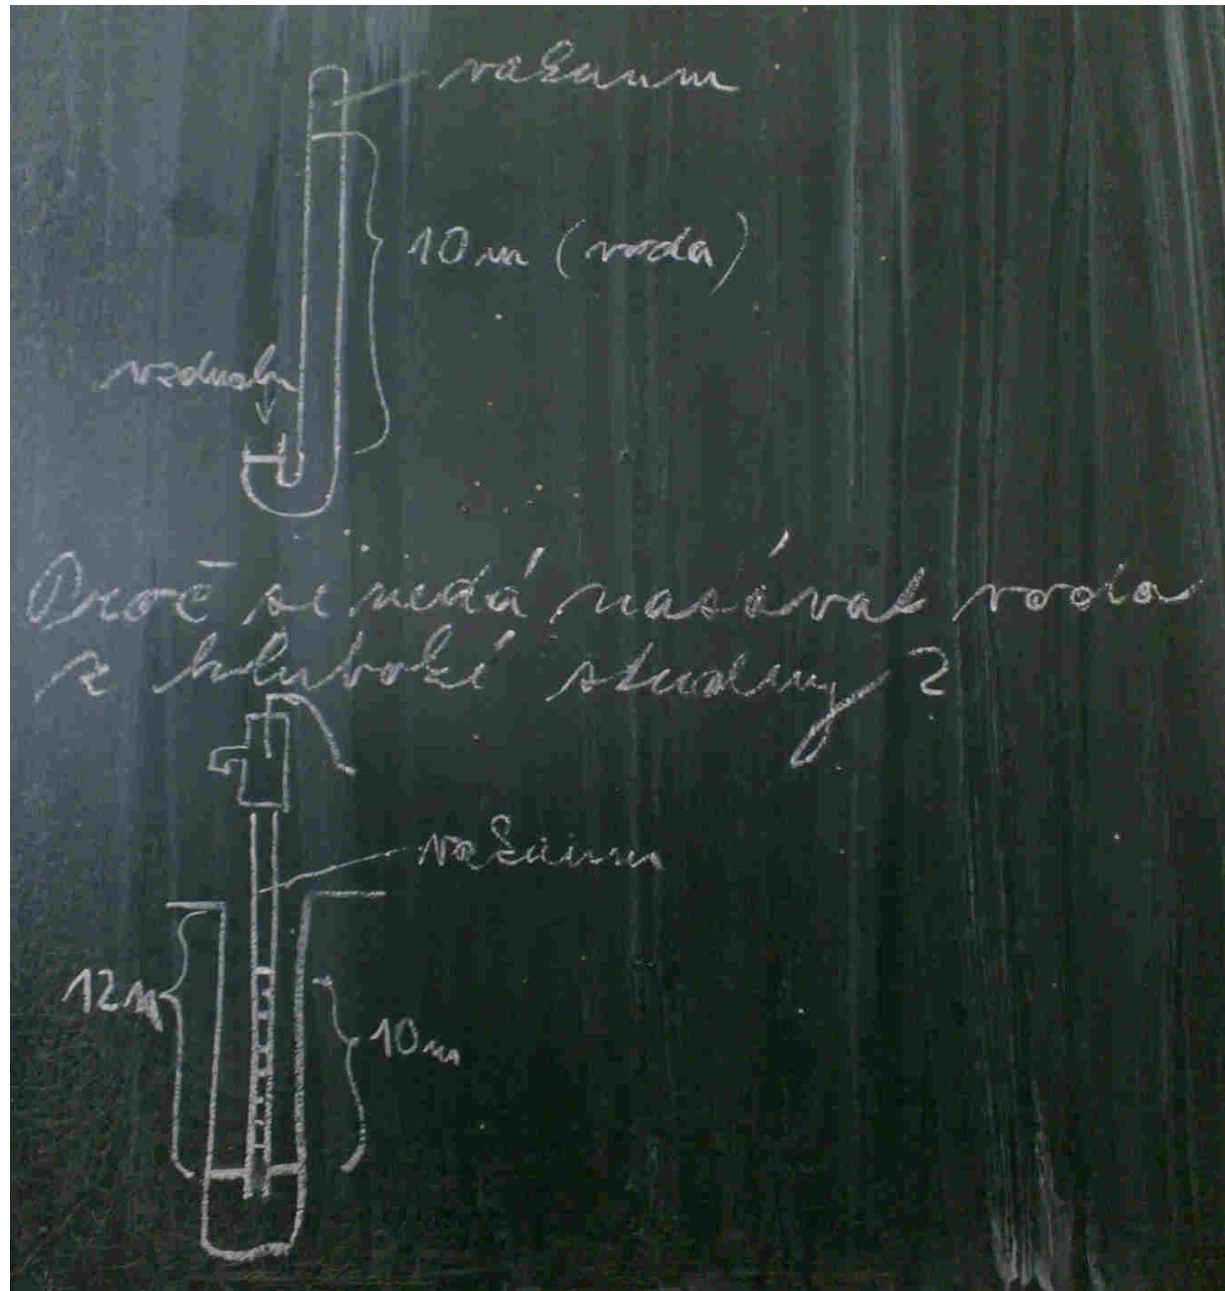 vakuum
10 m (voda)
vzduch
Proč se nedá nasávat voda
z hluboké studny?
vakuum
12 m
10 m